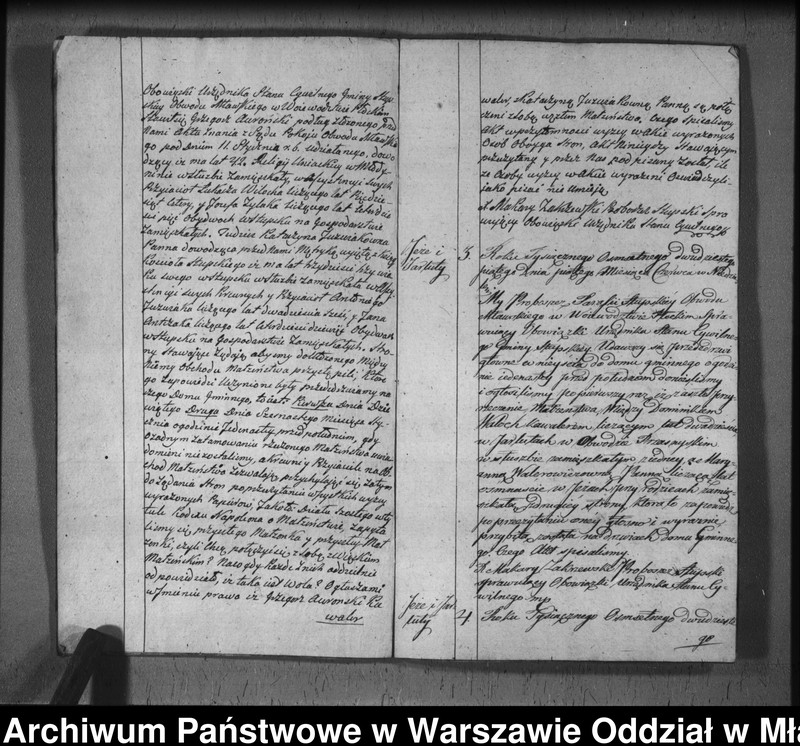 Obowiązki Urzędnika Stanu Cywilnego Gminy Słup
skiey Obwodu Mławskiego w Woiewodztwie Płockim
Grzegorz Auroński podług złożonego przed
Nami Aktu Znania z Sądu Pokoju Obwodu Mławskie
go pod dniem 11 Stycznia r. b. udziałanego, dowo
dzący iż ma lat 22. Religij Uniackiey w
w służbie zamięszkały, w Assystencyi swych
Przyiaciół Łukasza Włocha liczącego lat Pięćdzie
siąt cztery, y Józefa Żylaka liczącego lat Czterdzie
ści pięć obydwoch w Słupsku na Gospodarstwie
Zamięszkałych. Tudzież Katarzyna Juzwiakowna
Panna dowodząca przed Nami Metryką wyiętą z Xiąg
Kościoła Słupskiego iż ma lat trzydzieści trzy w
Słupsku w Służbie zamięszkała w Assy
stencyi swych Krewnych y Przyiaciół Antoniego
Juzwiaka liczącego lat dwadzieścia sześć, y Jana
Antczaka liczącego lat Czterdzieści dziewięć Obydwoch
w Słupsku na Gospodarstwie Zamięszkałych. Stro
ny Stawaiące żądaią abyśmy do ułożonego Między
Niemi Obchodu Małżeństwa przystąpili, które
go Zapowiedzi uczynione były przed drzwiami na
szego Domu Gminnego, to iest: Pierwsza Dnia Dzie
wiątego Druga Dnia Szesnastego Miesiąca Sty
cznia o godzinie Jedenastey przed południem, gdy
o żadnym zatamowaniu rzeczonego Małżeństwa uwia
domieni nie zostaliśmy, a krewni y Przyiaciele na Ob
chod Małżeństwa zezwalaią przychylaiąc się zatym
do żądania Stron po przeczytaniu wszystkich wyżey
wyrażonych Papierów, y Działu Szostego w ty
tule Kodexu Napoleona o Małżeństwie, zapyta
liśmy się przyszłego Małżonka y przyszłey Mał
żonki, czyli chcą połączyć się z sobą związkiem
Małżeńskim? Na co gdy każde z nich oddzielnie
odpowiedziało, iż taka iest Wola? Ogłaszamy
w Imieniu prawa iż Grzegorz Auroński Ka
waler
waler, z Katarzyną Juzwiakowną Panną są połą
czeni z sobą węzłem Małżeństwa, Czego spisaliśmy
Akt w przytomności wyżey w Akcie wyrażonych
Osób Oboyga Stron, Akt Ninieyszy Stawaiącym
przeczytany y przez Nas podpisany został ile
że Osoby wyżey w Akcie wyrażeni Oświadczyli
iako pisać nie umieią
X Makary Zakrzewski Proboszcz Słupski Spra
wuiący Obowiązki Urzędnika Stanu Cywilnego
Jeże i
Tartuty
3. Roku Tysiącznego Osmsetnego Dwudziestego
piątego Dnia piątego Miesiąca Czerwca w Niedzie
lę
My Proboszcz Parafii Słupskiey Obwodu
Mławskiego w Woiewodztwie Płockim Spra
wuiący Obowiązki Urzędnika Stanu Cywilne
go Gminy Słupskiey Udawszy się przede drzwi
główne weyścia do domu gminnego o godzi
nie iedenastey przed południem donieśliśmy
i ogłosiliśmy po pierwszy raz iż zaszło przy
rzeczenie Małżeństwa między Dominikiem
Włoch Kawalerem liczącym lat dwadzieścia
w Tartutach w Obwodzie Przasnyskim
w służbie zamięszkałym z iedney, a Mary
anną Walerowiczowną Panną liczącą lat
osmnaście w Jeżach przy rodzicach zamię
szkałą z drugiey strony, która to zapowiedź
po przeczytaniu oney głośno i wyraźnie,
przybitą została na drzwiach domu Gminne
go. Czego Akt spisaliśmy
X Makary Zakrzewski Proboszcz Słupski
sprawuiący Obowiązki Urzędnika Stanu Cy
wilnego mp
Jeże i Tar
tuty
4 Roku Tysiącznego Osmsetnego dwudzieste
go
Archiwum Państwowe w Warszawie Oddział w Mła